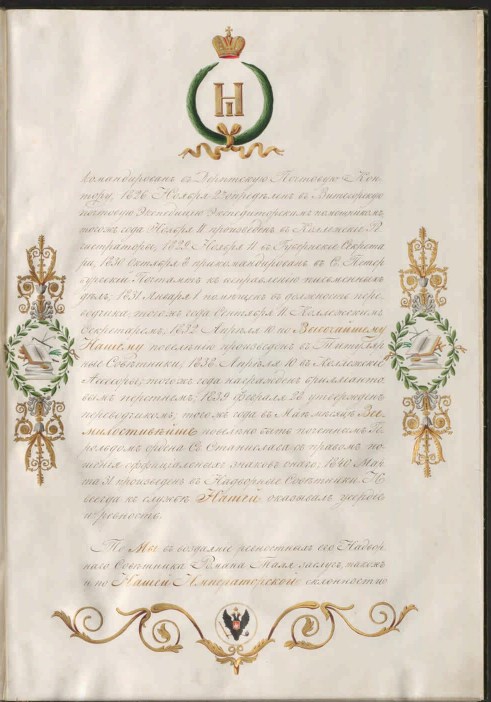 Н I
командированъ въ Дерптскую Почтовую Кон-
тору, 1826 Ноября опредѣленъ въ Витебскую
почтовую Экспедицію Экспедиторскимъ помощникомъ,
того же года Ноября 11 произведенъ въ Коллежскіе Ре-
гистраторы, 1829 Ноября 11 въ Губернскіе Секрета-
ри, 1830 Октября 8 прикомандированъ въ С. Петер-
бургскій Почтамтъ къ исправленію письменныхъ
дѣлъ, 1831 Января 1 помѣщенъ въ должность пере-
водчика, того же года Сентября 11 Коллежскимъ
Секретаремъ, 1832 Апрѣля 10 по Высочайшему
Нашему повелѣнію произведенъ въ Титуляр-
ные Совѣтники, 1838 Апрѣля 10 въ Коллежскіе
Ассесоры, того же года награжденъ брилліанто-
вымъ перстнемъ, 1839 Февраля 28 утвержденъ
переводчикомъ, того же года въ Маѣ мѣсяцѣ Все-
милостивѣйше повелѣно быть почетнымъ Ге-
рольдомъ ордена Св. Станислава съ правомъ но-
шенія оффиціальныхъ знаковъ онаго, 1840 Мар-
та 31 произведенъ въ Надворные Совѣтники. И
всегда къ службѣ Нашей оказывалъ усердіе
и ревность.
То Мы въ воздаяніе ревностныхъ его Надвор-
наго Совѣтника Романа заслугъ, такъ
и по Нашей Императорской склонностию